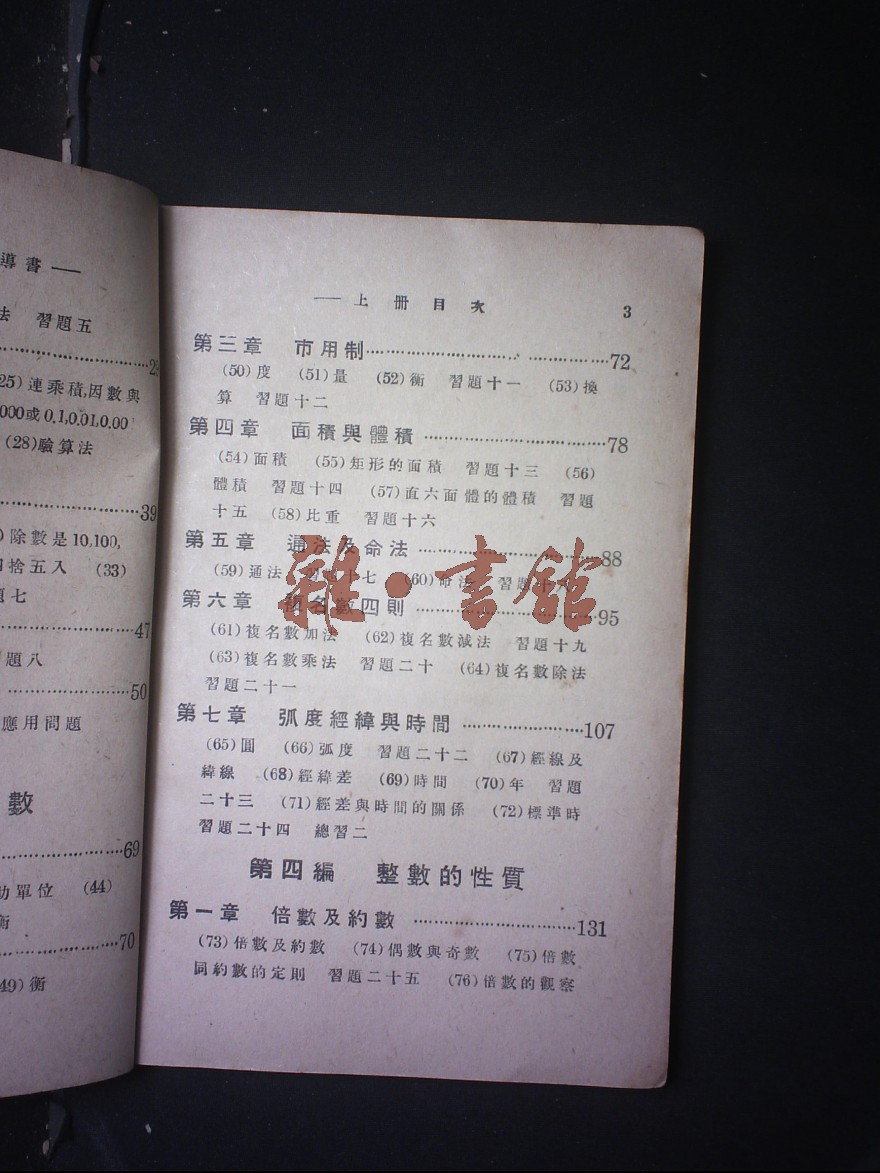 導書——
法 習題五
29
25)連乘積,因數與
000或0.1,0.01,0.00
(28)驗算法
39
)除數是10,100,
捨五入 (33)
題七
47
題八
50
應用問題
數
69
單位 (44)
衡
70
49)衡
——上册目次 3
第三章 市用制 72
(50)度 (51)量 (52)衡 習題十一 (53)換
算 習題十二
第四章 面積與體積 78
(54)面積 (55)矩形的面積 習題十三 (56)
體積 習題十四 (57)直六面體的體積 習題
十五 (58)比重 習題十六
第五章 通法及命法 88
(59)通法 習題十七 (60)命法 習題
第六章 複名數四則 95
(61)複名數加法 (62)複名數減法 習題十九
(63)複名數乘法 習題二十 (64)複名數除法
習題二十一
第七章 弧度經緯與時間 107
(65)圓 (66)弧度 習題二十二 (67)經線及
緯線 (68)經緯差 (69)時間 (70)年 習題
二十三 (71)經差與時間的關係 (72)標準時
習題二十四 總習二
第四編 整數的性質
第一章 倍數及約數 131
(73)倍數及約數 (74)偶數與奇數 (75)倍數
同約數的定則 習題二十五 (76)倍數的觀察
雜·書館